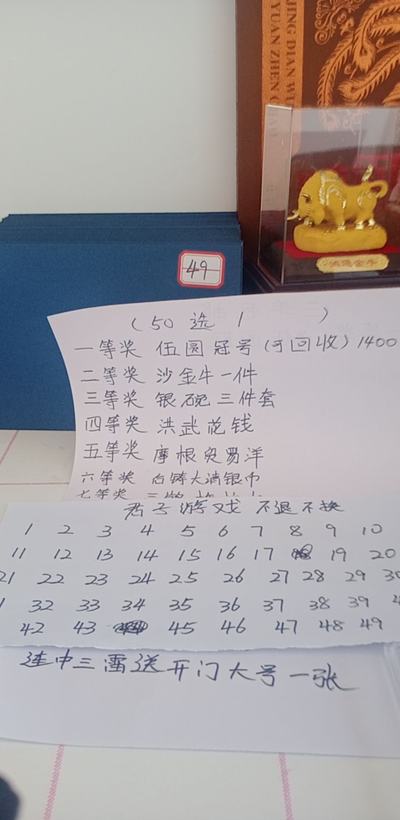 JING DIAN WU
YUAN ZHEN C
49
(50 选 1 )
一等奖 伍圆冠号(可回收)1400
二等奖 沙金牛一件
三等奖 银碗三件套
四等奖 洪武花钱
五等奖 摩根贸易洋
六等奖 白铸大清银币
七等奖
号游戏 不退不换
1 2 3 4 5 6 7 8 9 10
11 12 13 14 15 16 17 19 20
21 22 23 24 25 26 27 28 29 30
32 33 34 35 36 37 38 39
42 43 45 46 47 48 49
连中三雷送开门大号一张